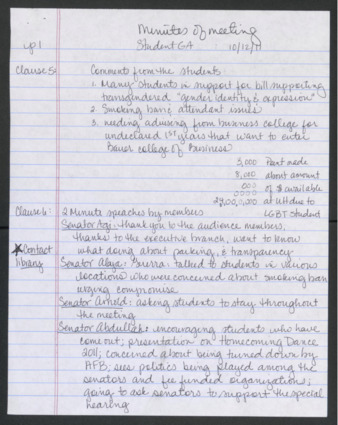 Minutes of meeting
pg 1 Student GA 10/12/11
Clause 5: Comment from the students:
1. Many students in support for bill supporting
transgendered "gender identity & expression"
2. Smoking bans; attendent issues
3. needing advising from business college for
undeclared 1st years that want to enter
Bauer college of Business
3,000 Point made
8,000 about amount
000 of $ available
0000 at UH due to
24,000,000 LGBT student
Clause 6: 2 Minute speaches by members
Senator : thank you to the audience members,
thanks to the executive branch, want to know
what doing about parking, & transparency
*Contact Senator : talked to students in various
locations who were concerned about smoking ban
urging compromise
Senator Arnold: asking students to stay throughout
the meeting
Senator Abdullah: encouraging students who have
come out; presentation on Homecoming Dance
2011; concerned about being turned down by
AFB; sees politics being played among the
senators and fee funded organizations;
going to ask senators to support the special
hearing